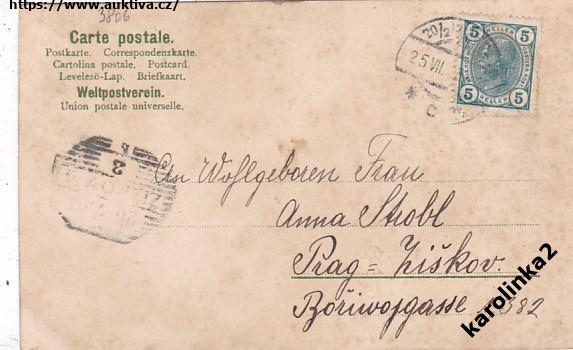 https://www.auktiva.cz/
3806
Carte postale.
Postkarte. Correspondenzkarte.
Cartolina postale. Postcard.
Levelező-Lap. Briefkaart.
Weltpostverein.
Union postale universelle.
5 5
HELLER
5 5
HELLER
25 VII
* C *
2
An Wohlgeboren Frau
Anna Strobl
Prag=Žiškov.
Bořiwojgasse 382
karolinka2